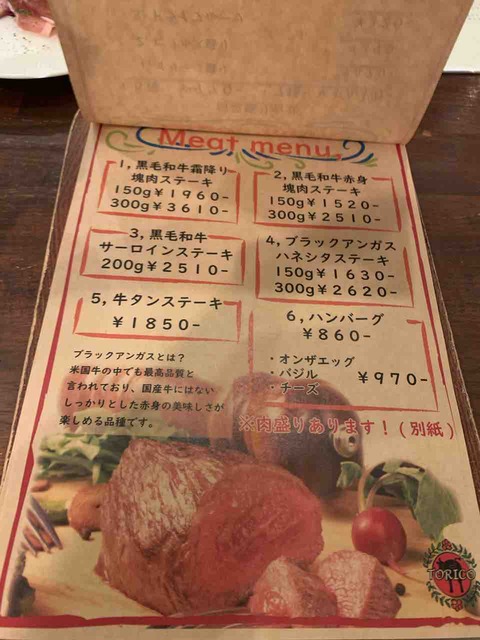 Meat menu
1, 黒毛和牛霜降り
塊肉ステーキ
150g¥1960-
300g¥3610-
2, 黒毛和牛赤身
塊肉ステーキ
150g¥1520-
300g¥2510-
3, 黒毛和牛
サーロインステーキ
200g¥2510-
4, ブラックアンガス
ハネシタステーキ
150g¥1630-
300g¥2620-
5, 牛タンステーキ
¥1850-
6, ハンバーグ
¥860-
・オンザエッグ
・バジル
・チーズ
¥970-
ブラックアンガスとは?
米国牛の中でも最高品質と
言われており、国産牛にはない
しっかりとした赤身の美味しさが
楽しめる品種です。
※肉盛りあります!(別紙)
TORICO